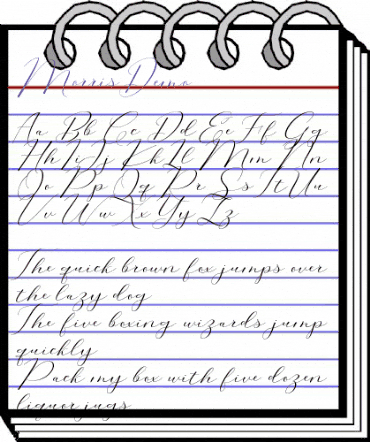 Morris Demo
Aa Bb Cc Dd Ee Ff Gg
Hh Ii Jj Kk Ll Mm Nn
Oo Pp Qq Rr Ss Tt Uu
Vv Ww Xx Yy Zz
The quick brown fox jumps over
the lazy dog
The five boxing wizards jump
quickly
Pack my box with five dozen
liquor jugs